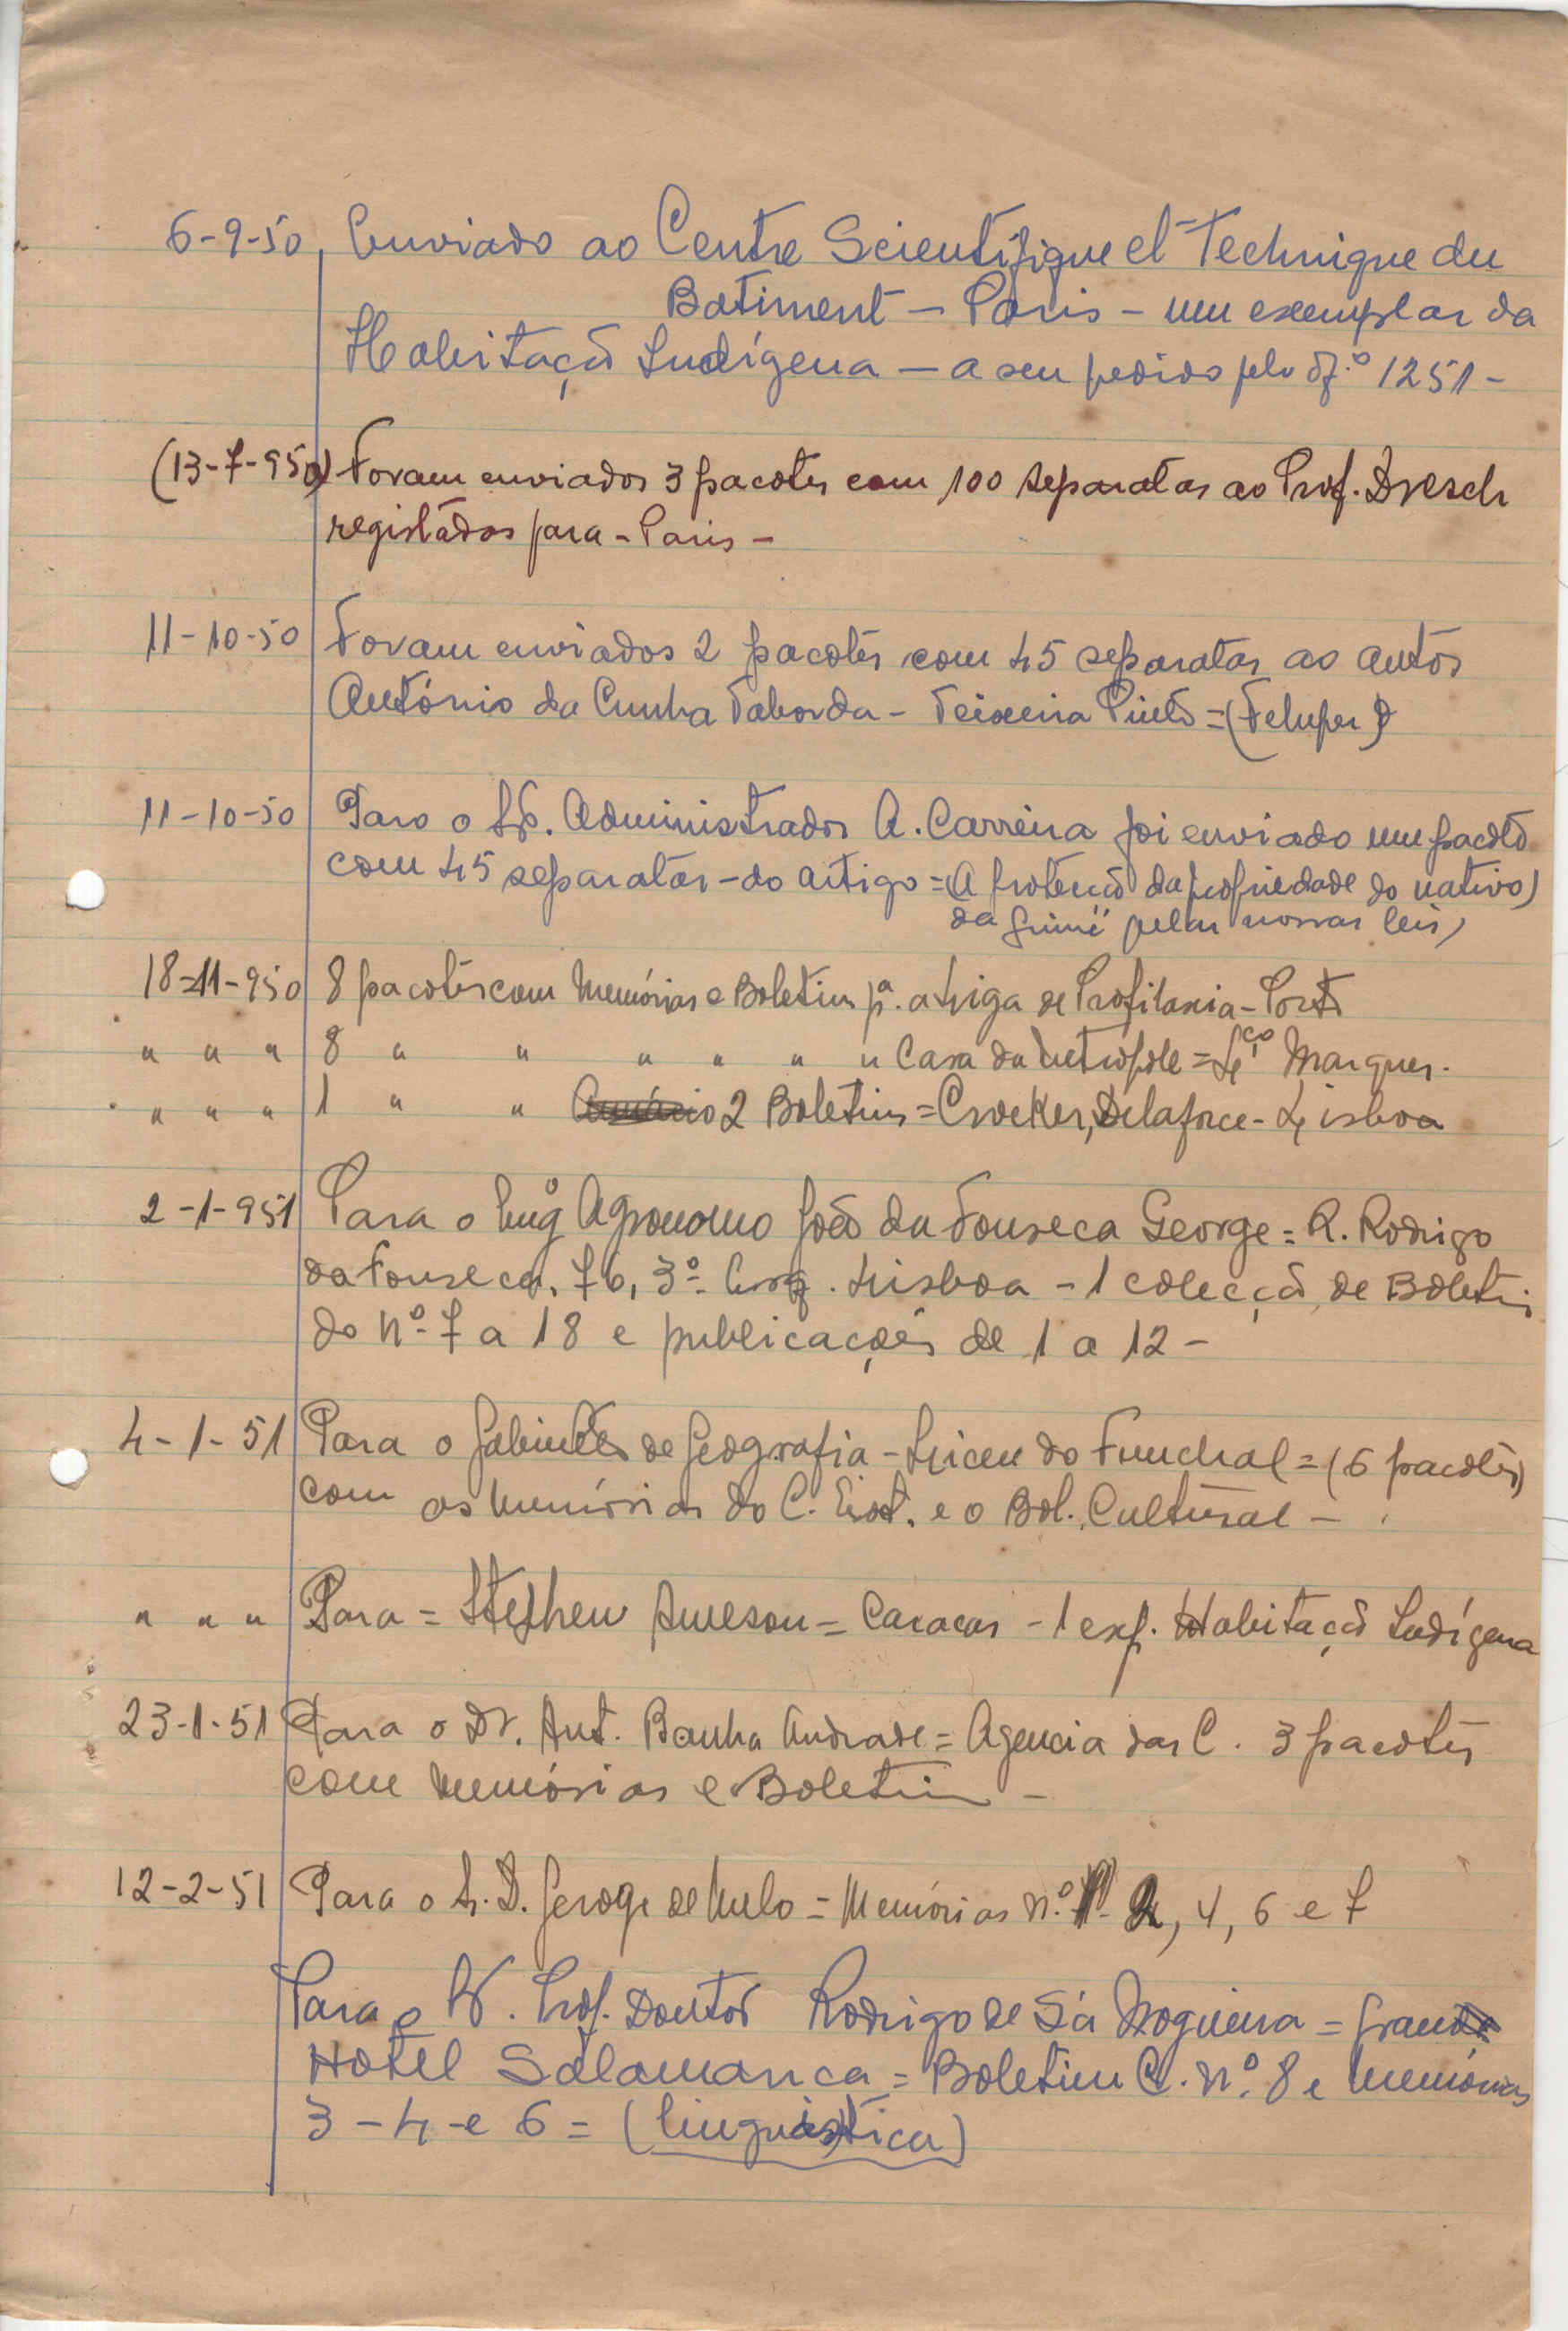 6-9-50 Enviado ao Centre Scientifique et Technique du
Batiment — Paris — um exemplar da
Habitação Indígena — a seu pedido pelo of.º 1251 -
(13-7-950) Foram enviados 3 pacotes com 100 separatas ao Prof. Dresch
registados para - Paris -
11-10-50 Foram enviados 2 pacotes com 45 separatas ao autor
António da Cunha Taborda - Teixeira Pinto = (Felupes)
11-10-50 Para o Sr. Administrador A. Carreira foi enviado um pacote
com 45 separatas - do artigo = (A protecção da propriedade do nativo)
da Guiné pelas nossas leis)
18=11-950 8 pacotes com Memórias e Boletins pª. a Liga de Profilaxia - Porto
" " " 8 " " " " " " Casa da Metrópole = Lço Marques.
" " " 1 " " 2 Boletins = Crocker, Delaforce - Lisboa
2-1-951 Para o Engº Agronomo João da Fonseca George = R. Rodrigo
da Fonseca, 76, 3º Esq. Lisboa - 1 colecção de Boletins
do nº 7 a 18 e publicações de 1 a 12 -
4-1-51 Para o Gabinete de Geografia - Liceu do Funchal = (6 pacotes)
com as Memórias do C. Est. e o Bol. Cultural -
" " " Para = Stephen = Caracas - 1 exp. Habitação Indígena
23-1-51 Para o Dr. Ant. Banha Andrade = Agencia das C. 3 pacotes
com Memórias e Boletim -
12-2-51 Para o Sr. D. de Melo = Memórias n.º 2, 4, 6 e 7
Para o Sr. Prof. Doutor Rodrigo de Sá Nogueira = Grande
Hotel Salamanca = Boletim C. n.º 8 e Memórias
3 - 4 - e 6 = (linguística)